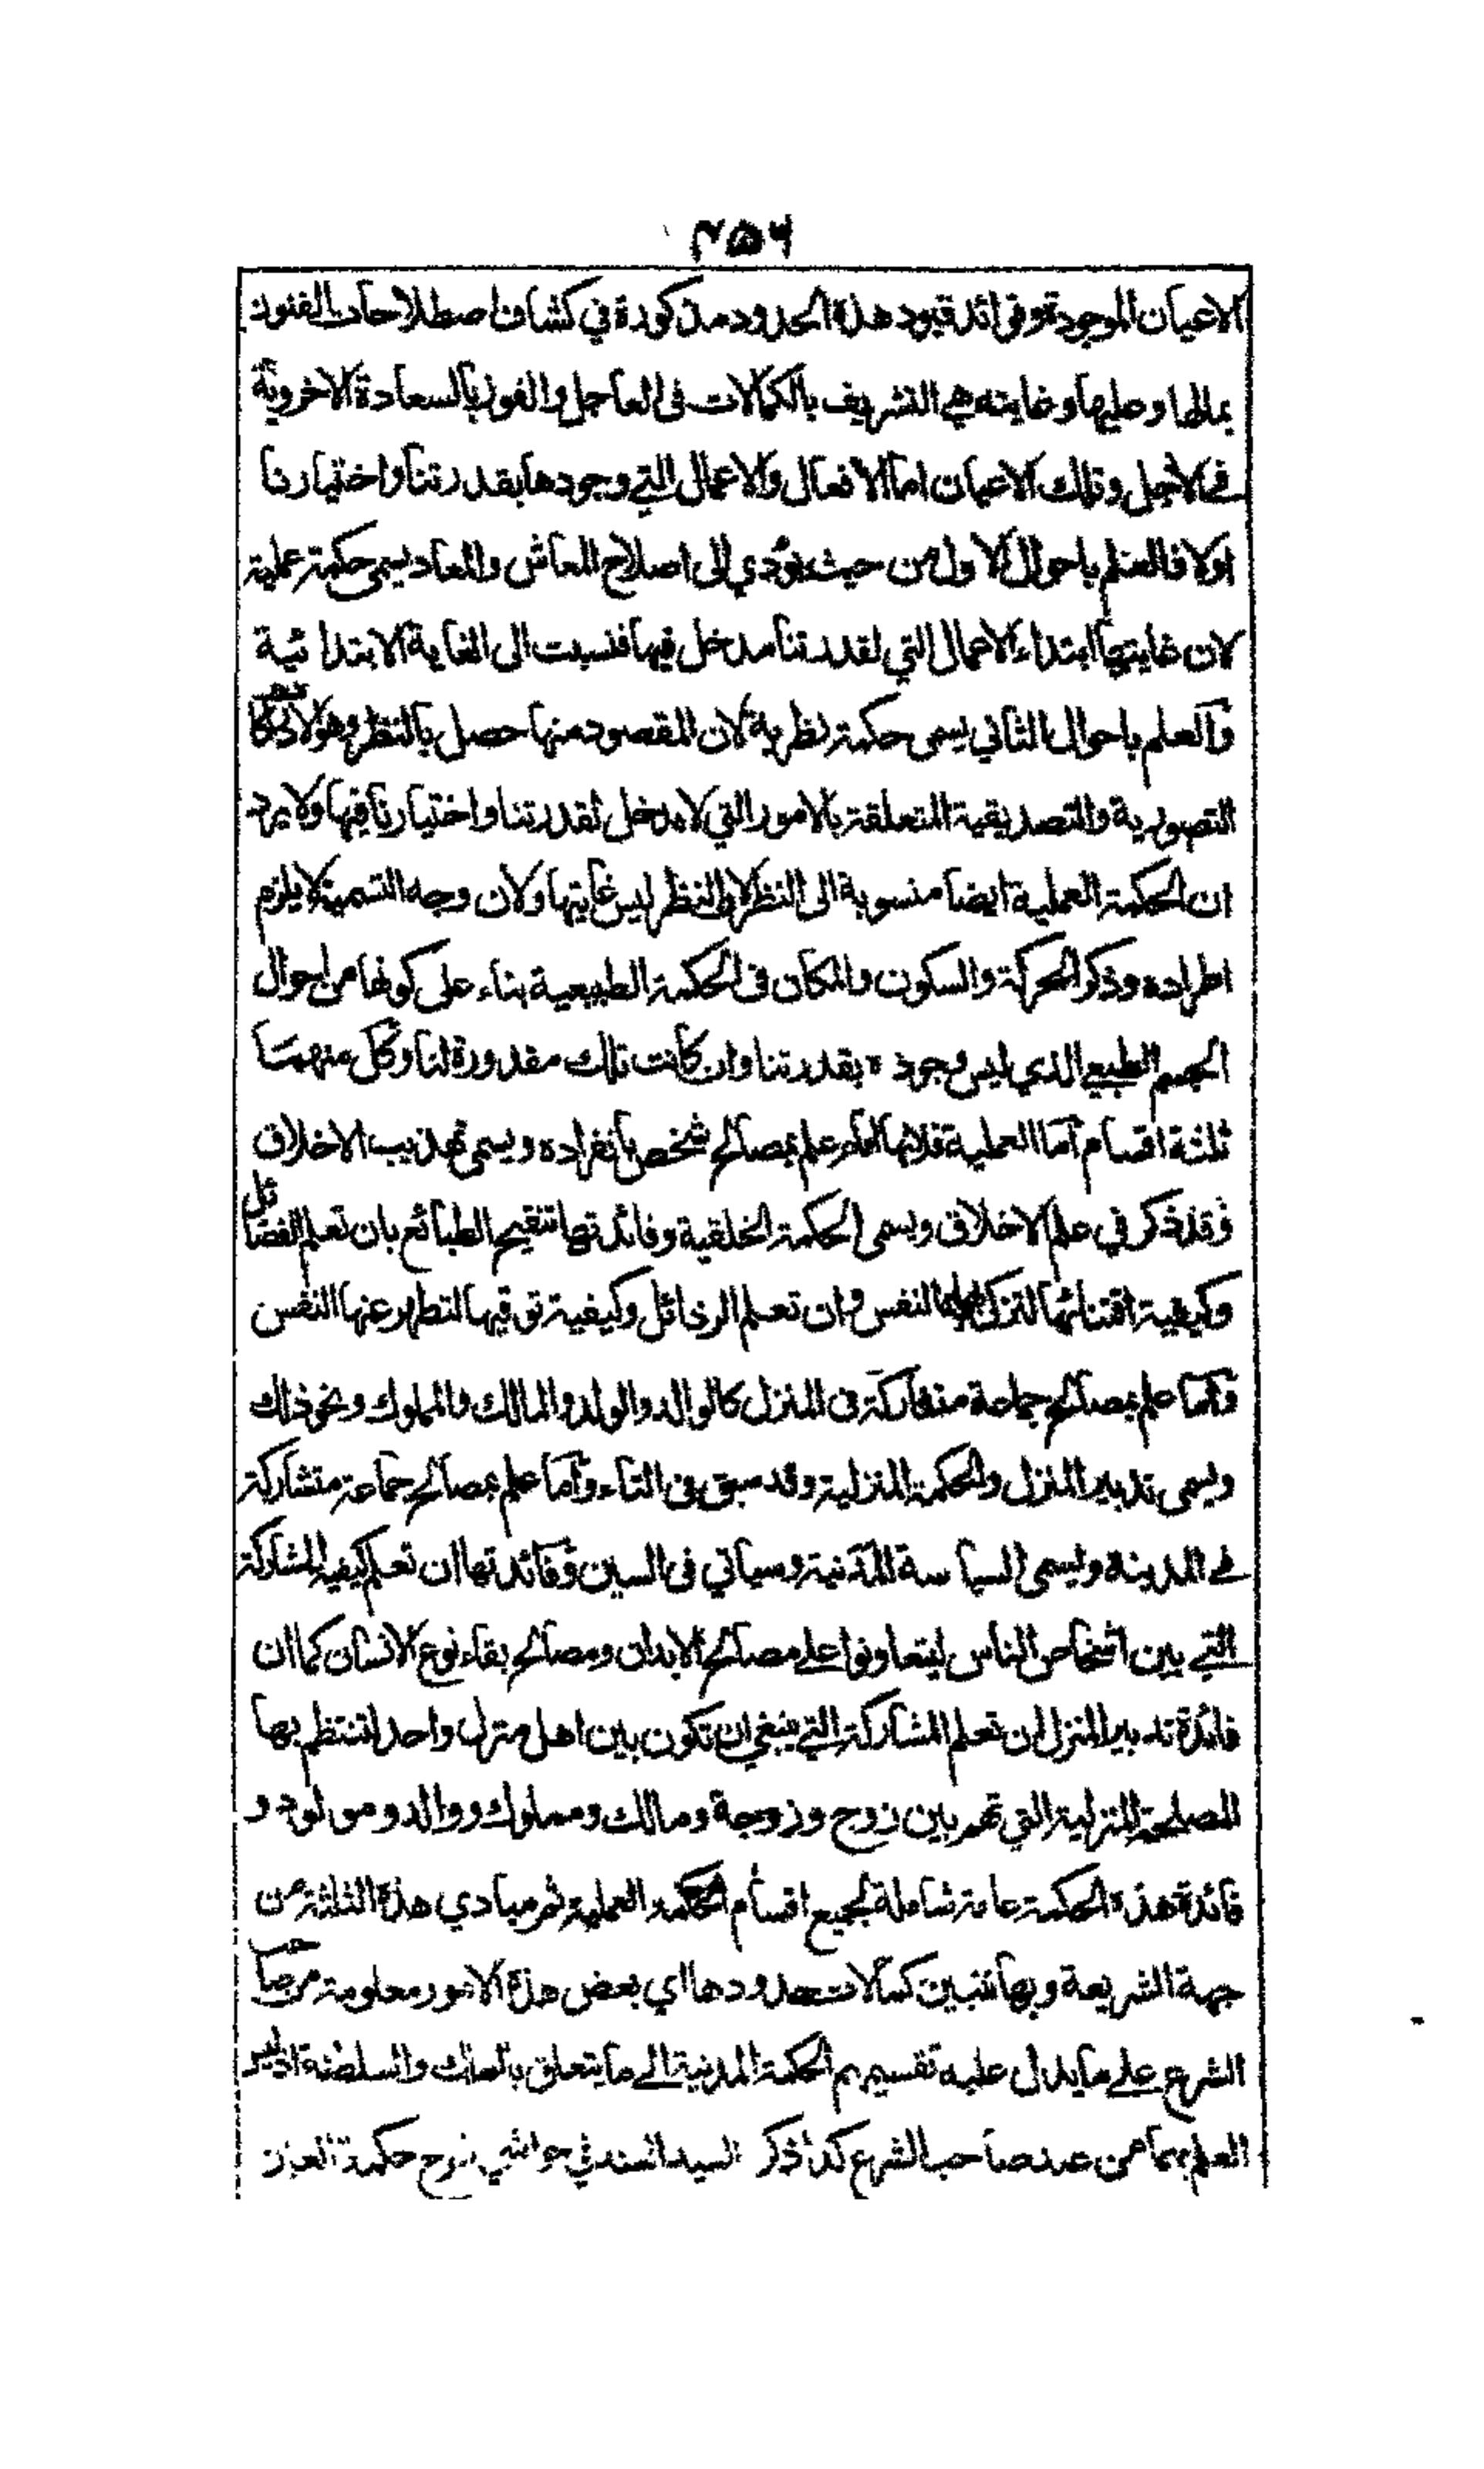 ۴۵۶
الاعيان الموجودة وفوائد قيود هذه الحدود مذكورة في كشاف اصطلاحات الفنون
بمالها وعليها وغايته هي التشريف بالكمالات فى العاجل والفوز بالسعادة الاخروية
في الأجل وتلك الاعيان اما الافعال والاعمال التي وجودها بقدرتنا واختيارنا
اولا فالعلم باحوال الاول من حيث يؤدي الى اصلاح المعاش والمعاد يسمى حكمة عملية
لان غايتها ابتداء الاعمال التي لقدرتنا مدخل فيها فنسبت الى الغاية الابتدائية
والعلم باحوال الثاني يسمى حكمة نظرية لان المقصود منها حصل بالنظر وهو الادراكات
التصورية والتصديقية المتعلقة بالامور التي لا مدخل لقدرتنا واختيارنا فيها ولا يرد
ان الحكمة العملية ايضا منسوبة الى النظر لان النظر ليس غايتها ولان وجه التسمية لا يلزم
اطراده وذكر الحركة والسكون والمكان فى الحكمة الطبيعية بناء على كونها من احوال
الجسم الطبيعي الذي ليس وجوده بقدرتنا وان كانت تلك مقدورة لنا وكل منهما
ثلثة اقسام اما العملية فلانها اما علم بمصالح شخص بانفراده ويسمى تهذيب الاخلاق
وقد ذكر في علم الاخلاق ويسمى الحكمة الخلقية وفائدتها تنقيح الطبائع بان تعلم الفضائل
وكيفية اقتنائها لتزكى بها النفس وان تعلم الرذائل وكيفية توقيها لتطهر عنها النفس
واما علم بمصالح جماعة متشاركة فى المنزل كالوالد والولد والمالك والمملوك ونحو ذلك
ويسمى تدبير المنزل والحكمة المنزلية وقد سبق فى التاء واما علم بمصالح جماعة متشاركة
في المدينة ويسمى السياسة المدنية وسياتي فى السين وفائدتها ان تعلم كيفية المشاركة
التي بين اشخاص الناس ليتعاونوا على مصالح الابدان ومصالح بقاء نوع الانسان كما ان
فائدة تدبير المنزل ان تعلم المشاركة التي ينبغي ان تكون بين اهل منزل واحد لتنتظم بها
المصلحة المنزلية التي تتم بين زوج وزوجة ومالك ومملوك ووالد ومولود و
فائدة هذه الحكمة عامة شاملة لجميع اقسام الحكمة العملية ثم مبادي هذه الثلثة من
جهة الشريعة وبها تتبين كمالات حدودها اي بعض هذه الامور معلومة من صاحب
الشرع على ما يدل عليه تقسيمهم الحكمة المدنية الى ما يتعلق بالملك والسلطنة اذ ليس
العلم بهما من عند صاحب الشرع كذا ذكر السيد السند في حواشي شرح حكمة العين